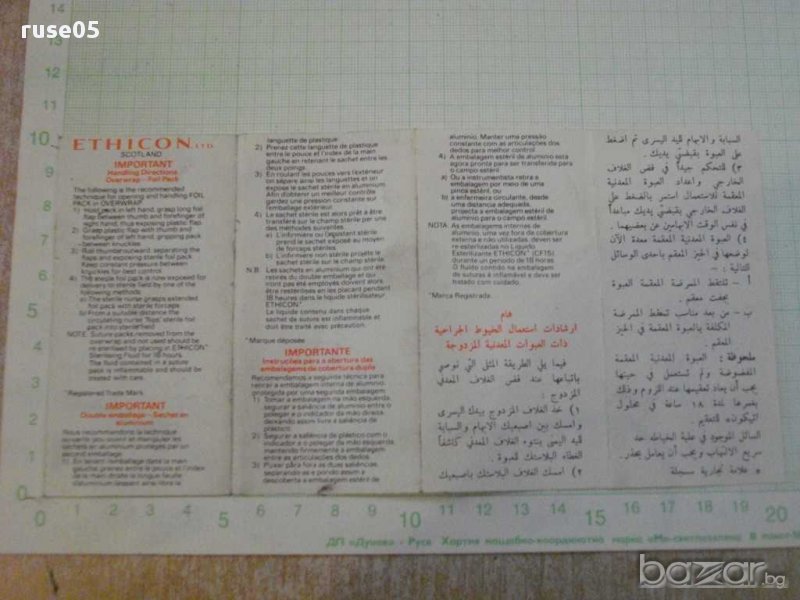 ruse05
ETHICON LTD.
SCOTLAND
IMPORTANT
Handling Directions
Overwrap - Foil Pack
The following is the recommended
technique for opening and handling FOIL
PACK in OVERWRAP
1) Hold pack in left hand, grasp long foil
flap between thumb and forefinger of
right hand, thus exposing plastic flap
2) Grasp plastic flap with thumb and
forefinger of left hand, gripping pack
between knuckles
3) Roll thumbs outward separating the
flaps and exposing sterile foil pack
Keep constant pressure between
knuckles for best control
4) The sterile foil pack is now exposed for
delivery to sterile field by one of the
following methods:
a) The sterile nurse grasps extended
foil pack with sterile forceps
b) From a suitable distance the
circulating nurse 'flips' sterile foil
pack into sterile field
NOTE. Suture packs removed from the
overwrap and not used should be
re-sterilised by placing in ETHICON*
Sterilising Fluid for 18 hours.
The fluid contained in a suture
pack is inflammable and should be
treated with care.
*Registered Trade Mark
IMPORTANT
Double emballage - Sachet en
aluminium
Nous recommandons la technique
suivante pour ouvrir et manipuler les
sachets en aluminium protégés par un
second emballage
1) En tenant l'emballage dans la main
gauche, prenez entre le pouce et l'index
de la main droite la longue feuille
d'aluminium laissant ainsi libre la
languette de plastique
2) Prenez cette languette de plastique
entre le pouce et l'index de la main
gauche en retenant le sachet entre les
deux poings
3) En roulant les pouces vers l'extérieur
on sépare ainsi les languettes et on
expose le sachet stérile en aluminium.
Afin d'obtenir un meilleur contrôle
gardez une pression constante sur
l'emballage extérieur.
4) Le sachet stérile est alors prêt à être
transféré sur le champ stérile par une
des méthodes suivantes.
a) L'infirmière ou l'assistant stérile
prend le sachet exposé au moyen
de forceps stériles
b) L'infirmière non stérile projete le
sachet stérile sur le champ stérile
N.B. Les sachets en aluminium qui ont été
retirés du double emballage et qui
n'ont pas été employés doivent alors
être restérilisés en les plaçant pendant
18 heures dans le liquide stérilisateur
ETHICON*
Le liquide contenu dans chaque
sachet de suture est inflammable et
doit être traité avec précaution.
*Marque déposée
IMPORTANTE
Instruções para a abertura das
embalagems de cobertura dupla
Recomendamos a seguinte técnica para
retirar a embalagem interna de alumínio
protegida por uma segunda embalagem.
1) Tomar a embalagem na mão esquerda,
segurar a saliência de alumínio entre o
polegar e o indicador da mão direita,
deixando assim livre a saliência de
plástico
2) Segurar a saliência de plástico com o
indicador e o polegar da mão esquerda,
mantendo firmemente a embalagem
entre as articulações dos dedos
3) Puxar para fora as duas saliências,
separando-as e pondo assim a
descoberta a embalagem estéril de
alumínio. Manter uma pressão
constante com as articulações dos
dedos para melhor control
4) A embalagem estéril de alumínio está
agora pronta para ser transferida para
o campo estéril
a) Ou a instrumentista retira a
embalagem por meio de uma
pinza estéril, ou
b) a enfermeira circulante, desde
uma distancia adequada,
projecta a embalagem estéril de
alumínio para o campo estéril
NOTA. As embalagems internas de
alumínio, uma vez fora da cobertura
externa e não utilizadas, deven ser
re-esterilizadas no Líquido
Esterilizante ETHICON* (CF15)
durante un periodo de 18 horas
O fluido contido na embalagem
de suturas é inflamável e deve ser
tratado com cuidado.
*Marca Registrada.
هام
ارشادات استعمال الخيوط الجراحية
ذات العبوات المعدنية المزدوجة
فيما يلي الطريقة المثلى التي نوصي
باتباعها عند فض الغلاف المعدني
المزدوج :
١) خذ الغلاف المزدوج بيدك اليسرى
و امسك بين الابهام والسبابة
لليد اليمنى بنتوء الغلاف المعدني كاشفاً
الغطاء البلاستك للعبوة .
٢) امسك الغلاف البلاستك باصبعيك
السبابة و الابهام لليد اليسرى ثم اضغط
على العبوة بقبضتي يديك .
٣) للتحكم جيداً في فض الغلاف
الخارجي و اعداد العبوة المعدنية
المعقمة للاستعمال استمر بالضغط على
الغلاف الخارجي بقبضتي يديك مباعداً
في نفس الوقت الابهامين عن بعضهما .
٤) العبوة المعدنية المعقمة معدة الآن
لوضعها في الجيز المعقم باحدى الوسائل
التالية :
أ - تلتقط الممرضة المعقمة العبوة
بجفت معقم .
ب- من بعد مناسب تسقط الممرضة
المكلفة بالعبوة المعقمة في الحيز
المعقم .
ملحوظة : العبوة المعدنية المعقمة
المفضوضة ولم تستعمل في حينها
يجب أن يعاد تعقيمها عند اللزوم وذلك
بغمرها لمدة ١٨ ساعة في محلول
اثيكون* للتعقيم .
السائل الموجود في علبة الخياطه حد
سريع الالتهاب و يجب أن يعامل بحذر .
* علامة تجارية مسجلة
14
12
11
10
9
8
7
6
5
4
3
2
1
0
0 1 2 3 4 5 6 7 8 9 10 11 12 13 14 15 16 17 18 19 20
ДП «Дунав» - Русе Хартия мащабно-координатна марка
bazar.bg